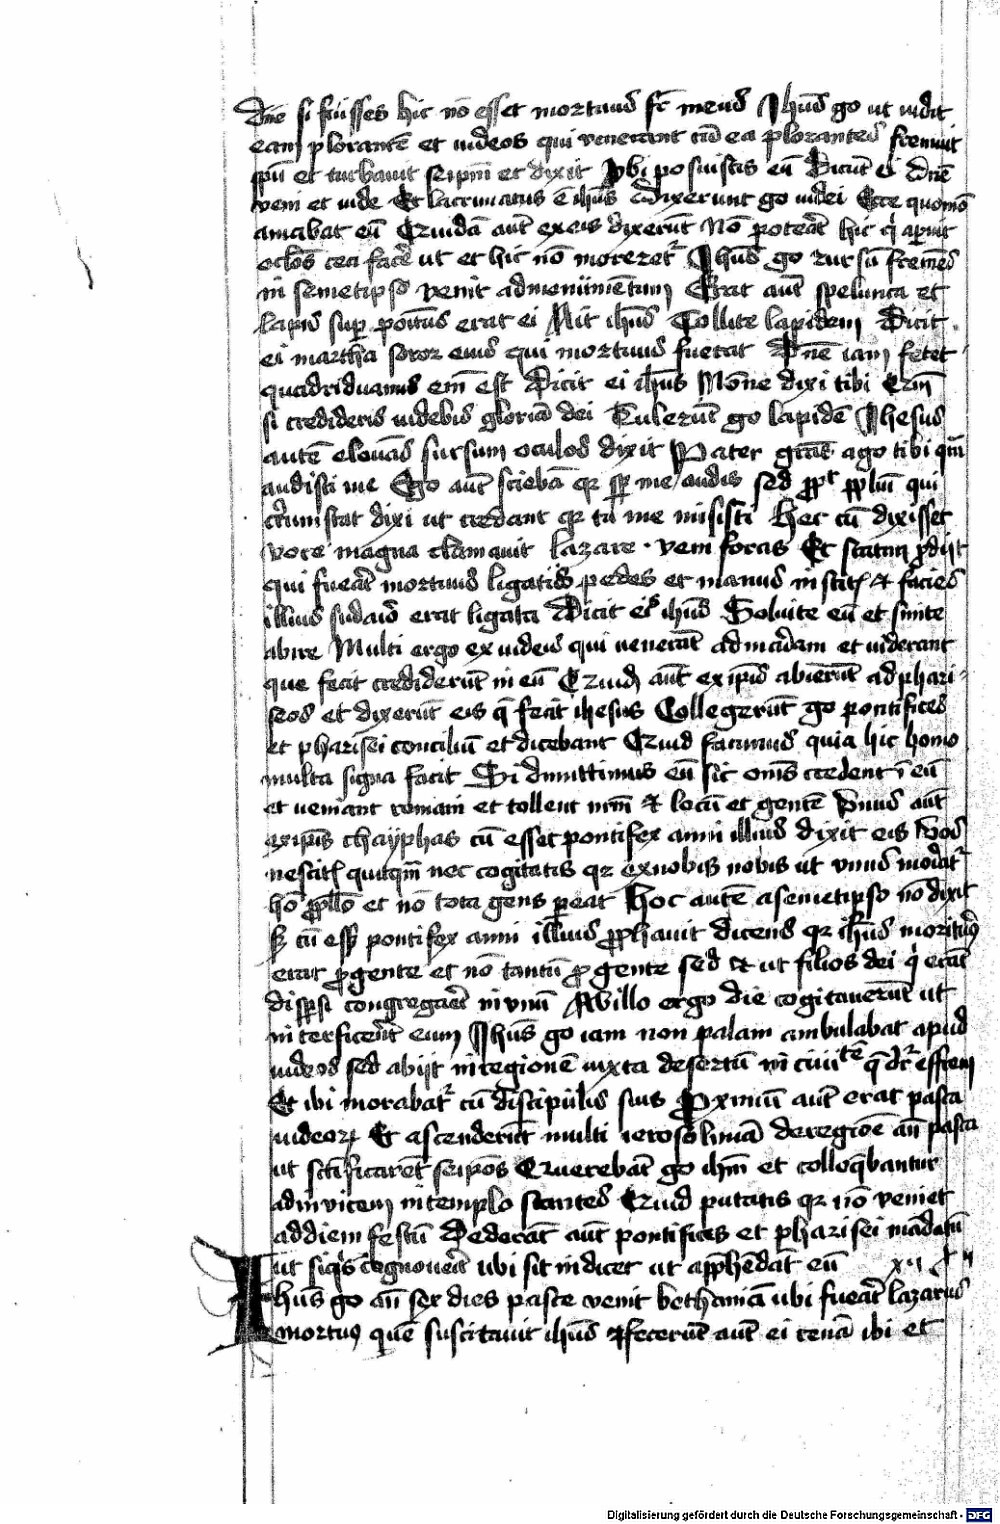 Dn̄e si fuisses hic nō esset mortuus fr̄ meus Ihūs ḡo ut vidit
eam plorantē et iudeos qui venerant cū ea plorantes fremuit
spū et turbauit seipm̄ et dixit Vbi posuistis eū Dicūt ei Dn̄e
veni et vide Et lacrimatus ē ihūs Dixerunt ḡo iudei Ecce quomō
amabat eū Quidā aūt ex eis dixerūt Nō poterat hic q̇ aperuit
oclos ceci facē ut et hic nō moreret᷑ Ihūs ḡo rursū fremēs
in semetipso venit ad monumētum Erat aūt spelunca et
lapis sup̄ poitus erat ei Ait ihūs Tollite lapidem Dicit
ei martha soror eius qui mortuus fuerat Dn̄e iam fetet
quadriduanus em̄ est Dicit ei ihūs Nōne dixi tibi qm̄
si credideris videbis gloriā dei Tulerūt ḡo lapidē Ihesus
autē eleuatis sursum oculos dixit Pater gr̄as ago tibi qm̄
audisti me Ego aūt sciebā qr̄ sp̄ me audis sed ppt̄ pplm̄ qui
cr̄cumstat dixi ut credant qr̄ tu me misisti Hec cū dixisset
voce magna clamauit lazare · veni foras Et statim pdijt
qui fuerat mortuus ligatus pedes et manus institꝭ et facies
illius sudario erat ligata Dicit eis ihūs Soluite eū et sinite
abire Multi ergo ex iudeis qui uenerāt ad mariam et viderant
que fecit crediderūt in eū Quidā aūt ex ipsis abierūt ad phari
seos et dixerūt eis q̄ fecit ihesus Collegerūt ḡo pontifices
et pharisei conciliū et dicebant Quid facimus quia hic homo
multa signa facit Si dimittimus eū sic om̄s credent ī eū
et venient romani et tollent nr̄m et locū et gentē Vnus aūt
ex ipsis chayphas cū esset pontifex anni illius dixit eis Vos
nescitꝭ quicqm̄ nec cogitatis qr̄ ex nobis nobis ut vnus moriat᷑
hō pplo et nō tota gens pereat Hoc autē a semetipso nō dixit
sꝫ cū esset pontifex anni illius pphauit dicens qr̄ ihūs moriturꝰ
erat pro gente et nō tantū pro gente sed et ut filios dei q̇ erāt
dispsi congregaret in vnū Ab illo ergo die cogitauerūt ut
interficerēt eum Ihūs ḡo iam non palam ambulabat apud
iudeos sed abijt in regionē iuxta desertū in ciuitē q̄ dr̄ effrem
Et ibi morabat᷑ cū discipulis suis Pximū aūt erat pasca
iudeoꝝ Et ascenderūt multi ierosolimā de regiōe an̄ pasca
ut sctificarēt seipos Querebāt ḡo ihm̄ et colloq̄bantur
ad invicem in templo stantes Quid putatis qr̄ nō veniet
ad diem festū Dederāt aūt pontifices et pharisei mādatū
ut siq̇s cognouerit ubi sit indicet ut app̄hēdāt eū xii
Ihūs ḡo an̄ sex dies pasce venit bethaniā ubi fuerat lazarus
mortuꝰ quē suscitauit ihūs fecerūt aūt ei cenā ibi et
Digitalisierung gefördert durch die Deutsche Forschungsgemeinschaft - DFG